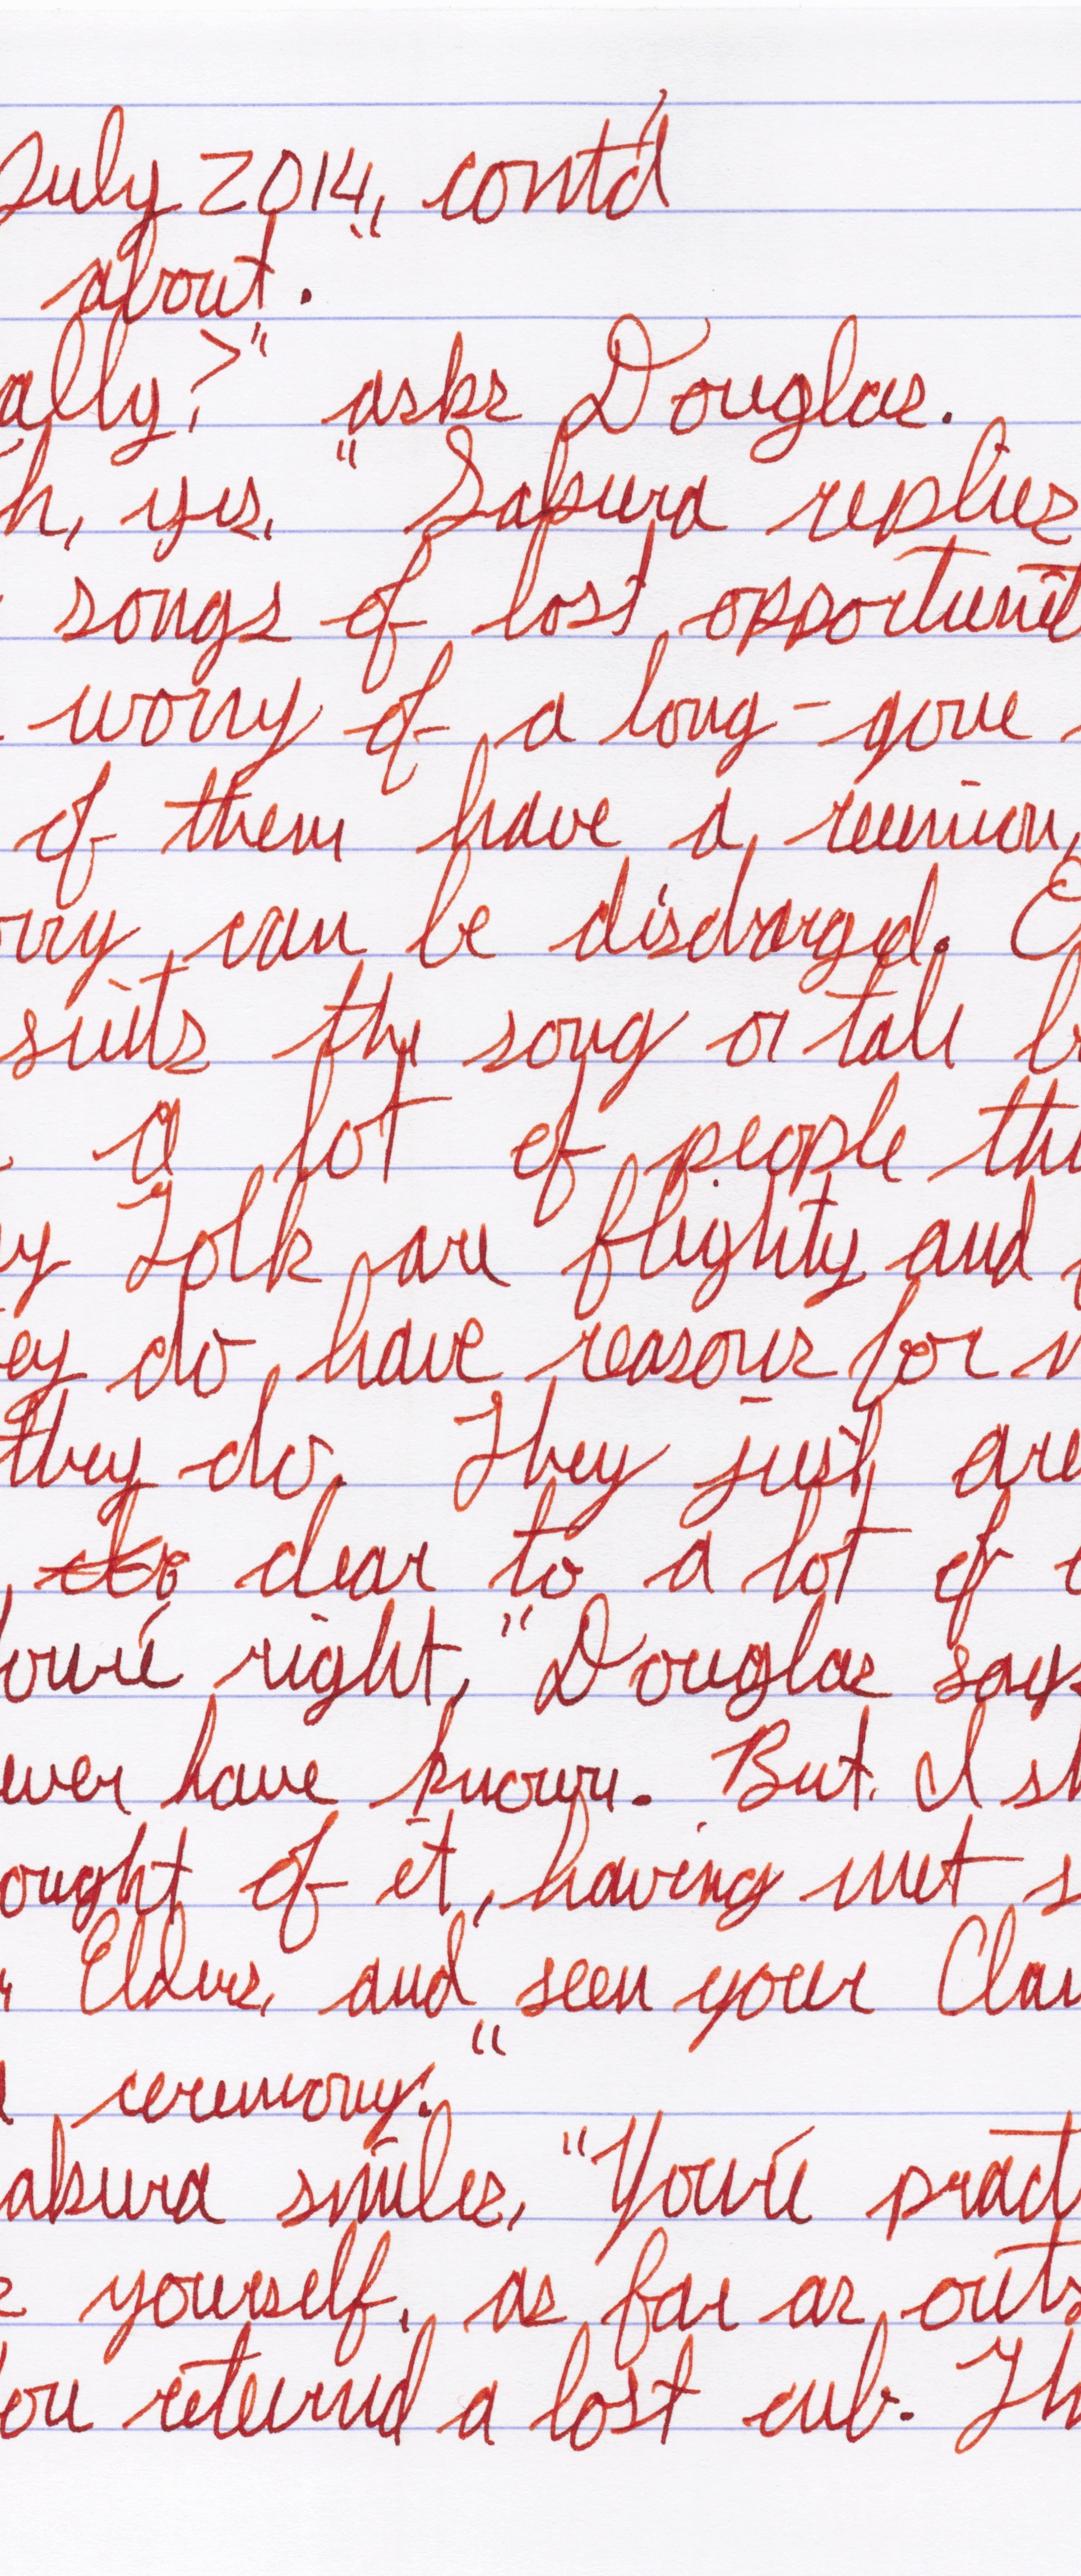 July 2014, cont'd
about."
ally?" asks Douglas.
h, yes." Sakura replies
songs of lost opportunit
worry of a long-gone
of them have a reunion,
orry can be discharged.
suits the song or tale b
a lot of people thi
y Folk are flighty and
ey do have reasons for
they do. They just are
clear to a lot of
ou're right," Douglas says
ever have known. But I sh
ought of it, having met s
Elders, and seen your Clan
ceremony."
akura smiles, "You're pract
yourself, as far as outs
ou returned a lost cub. Th